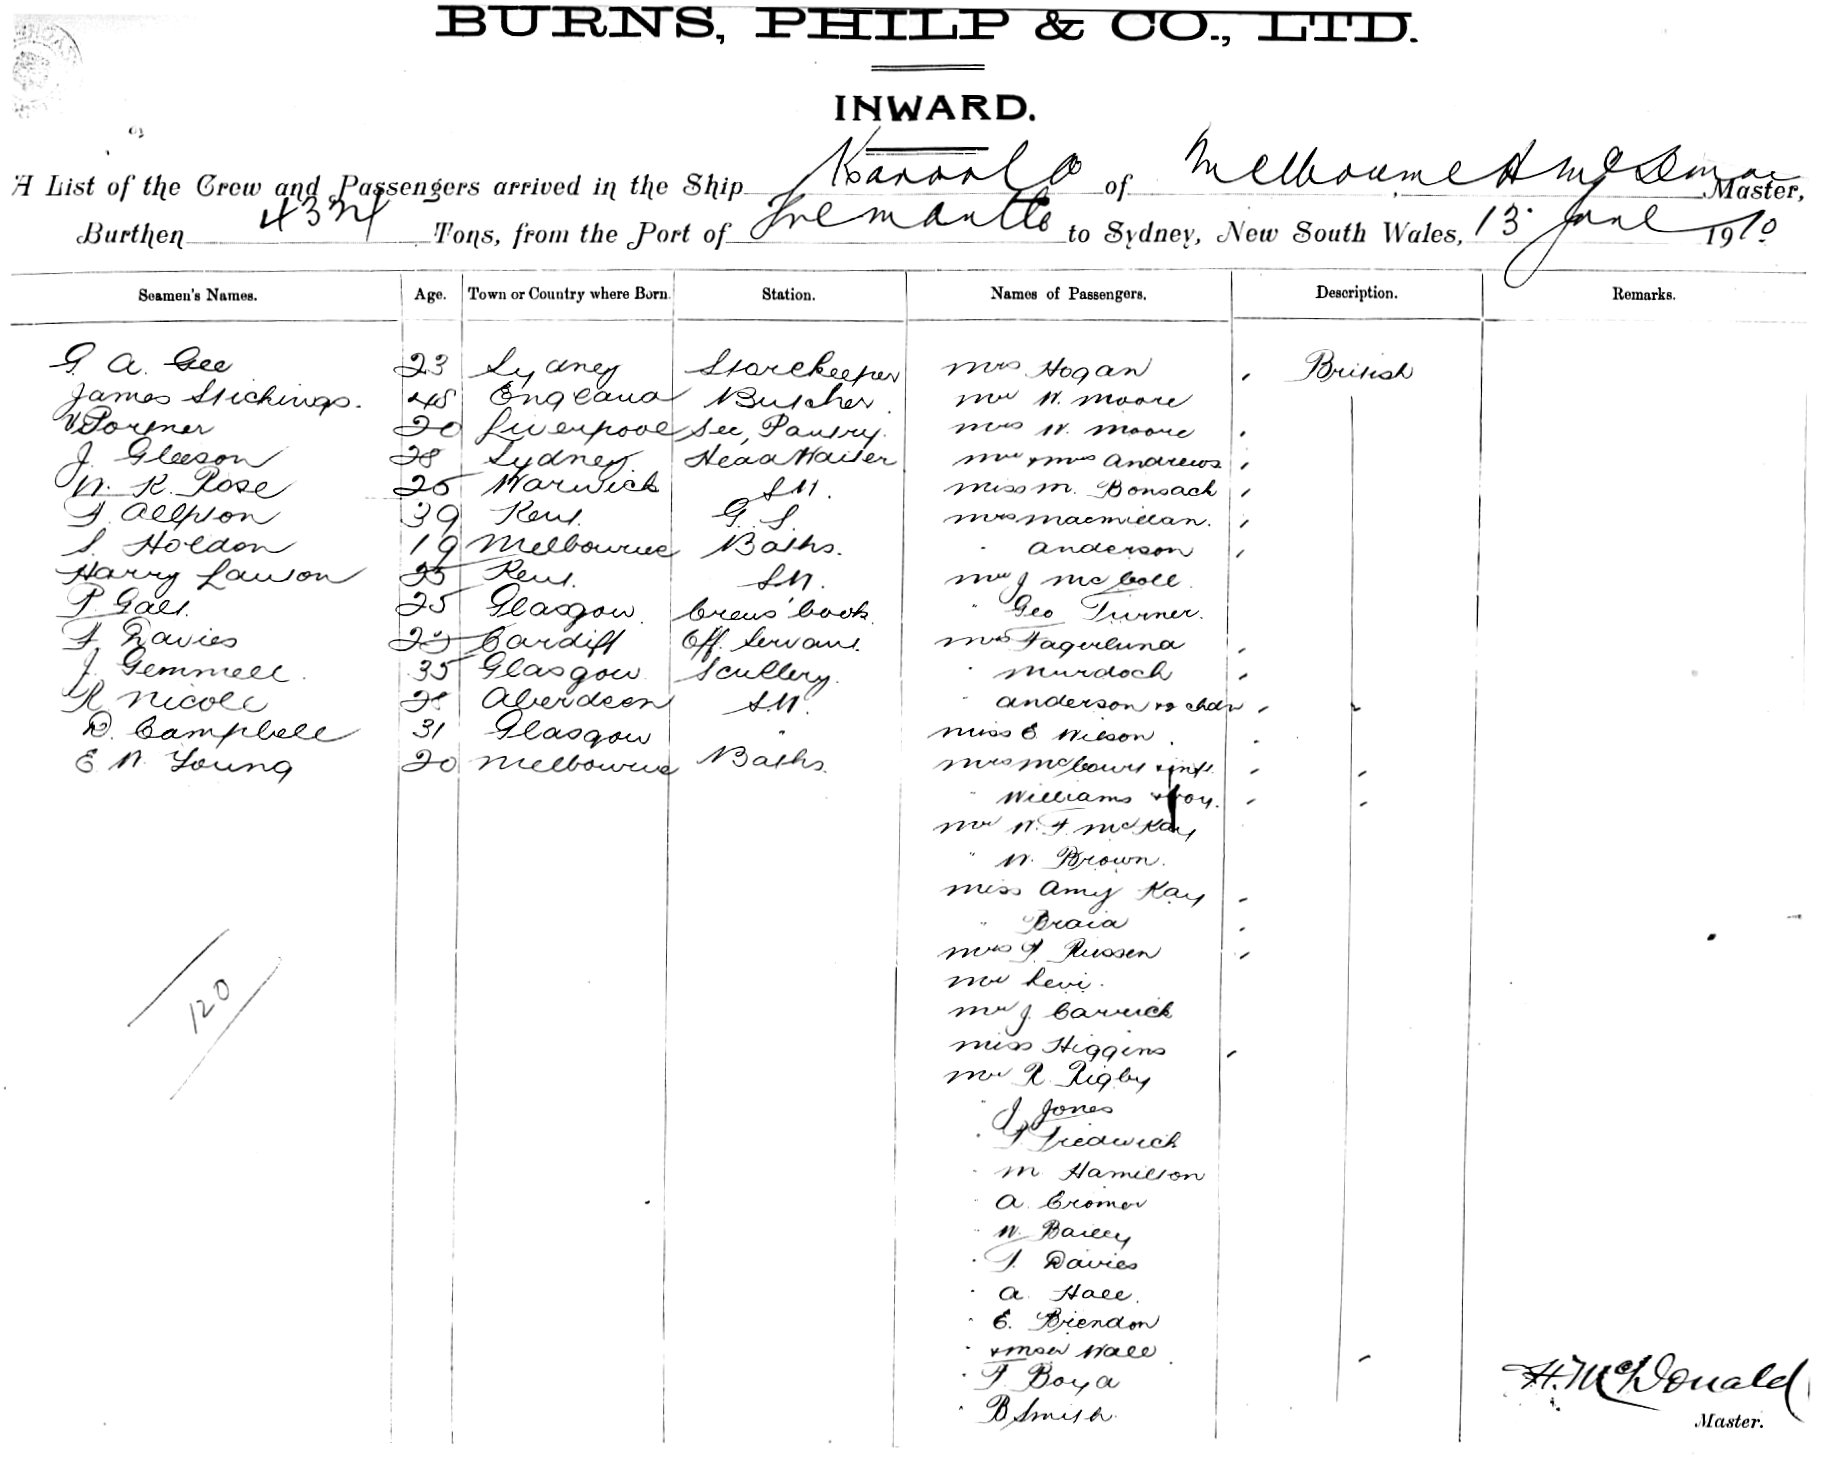 BURNS, PHILP & CO., LTD.
INWARD.
A List of the Crew and Passengers arrived in the Ship Karoola of Melbourne H McDonald Master,
Burthen 4324 Tons, from the Port of Fremantle to Sydney, New South Wales, 13 June 1910
Seamen's Names. Age. Town or Country where Born. Station. Names of Passengers. Description. Remarks.
G. A. Gee 23 Sydney Storekeeper Mrs Hogan British
James Stichings. 48 England Butcher Mr W. Moore
V Portner 20 Liverpool Sec, Pantry. Mrs W. Moore
J. Gleeson 28 Sydney. Head Waiter Mr & Mrs Andrews
W. K. Rose 25 Warwick S.W. Miss M. Bonsach
F. Allpion 39 Kent. G. S. Mrs Macmillan.
S. Holdon 19 Melbourne Baths. " Anderson
Harry Lawson 25 Kent. S.W. Mr J McColl
P Galt. 25 Glasgow. Crews' Cook. " Geo Turner.
F. Davies 23 Cardiff Off. Servant. Mrs Fagerlund
J. Gemmell. 35 Glasgow Scullery. " Murdoch
R Nicoll 28 Aberdeen S.W. " Anderson & 2 chdn
D. Campbell 31 Glasgow " Miss E. Wilson.
E W. Young 20 Melbourne Baths. Mrs McCourt & inft.
" Williams & boy.
Mr W. F. McKay
" W. Brown.
Miss Amy Kay
" Braid
Mrs F. Russen
Mr Levi.
Mr J. Carrick
Miss Higgins
Mr R. Rigby
" J Jones
" Tredwich
" M Hamilton
" A. Cromer
" W. Bailey
" T. Davies
" A. Hall.
" E. Briendon
" & Mstr Wall
" F. Boyd
" B Smith.
120
H. McDonald
Master.